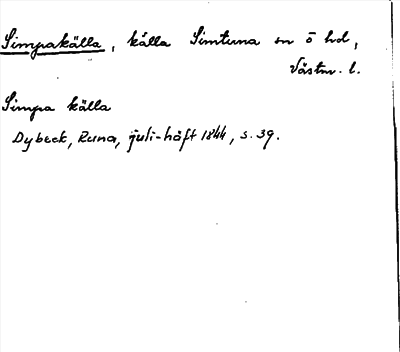 Simpakälla, källa Simtuna sn o hd,
Västm. l.
Simpa källa
Dybeck, Runa, juli-häft 1844, s. 39.